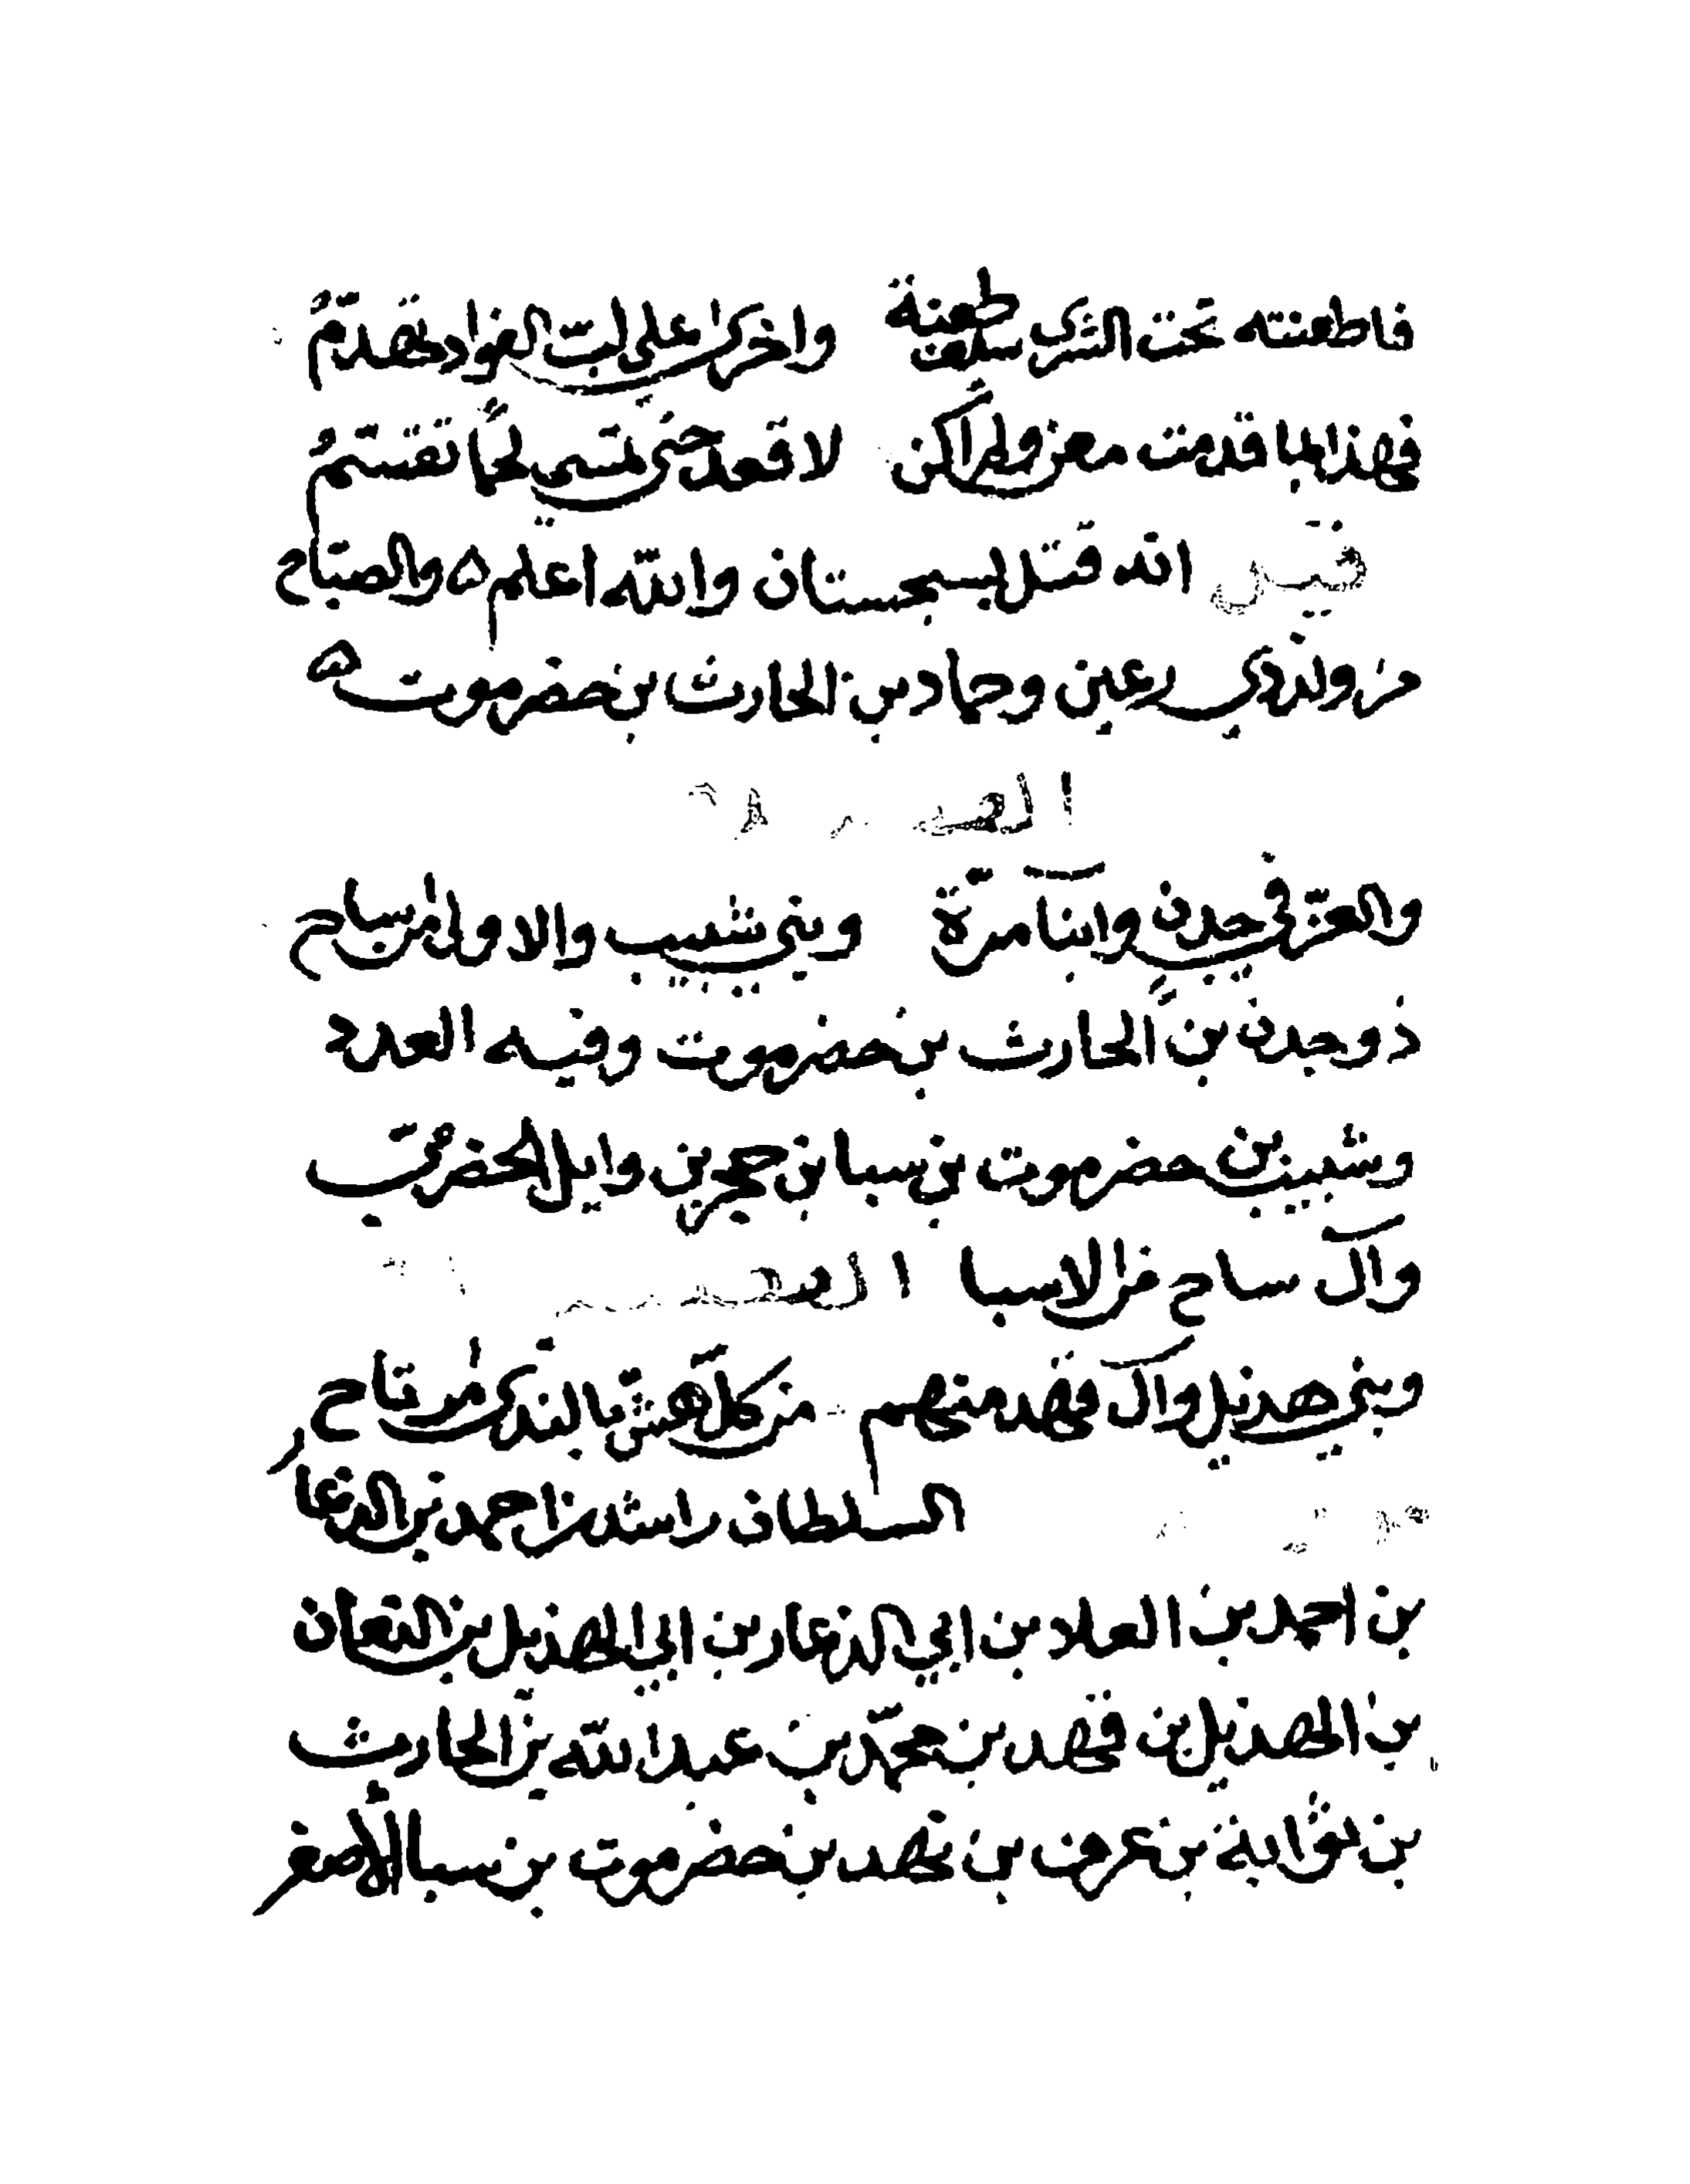 فاطعنته تحت الثرى سلقت طعنة واخرى على لب الفواد تهدم
فهذا لما قدمت معن ولم اكن لا قعد حتى تقسم
قيل انه قتل بسجستان والله اعلم ه والصباح
من ولد ذي رعين وحماد بن الحارث بن حضرموت ه
والعز في جدن وابنا مرة وبني شبيب والاولى من ساح
ذو جدن بن الحارث بن حضرموت وفيه العدد
وشبيب بن حضرموت بن سبا بن حجر بن وايل الحضرمي
وآل ساح من الاسبا
وبني هذيل وآل فهد منهم من كل هش بالندى مرتاح
السلطان راشد بن احمد بن الدغار
بن احمد بن العلا بن ابي الدغار بن ابي الهذيل بن النعمان
بن الهذيل بن فهد بن محمد بن عبد الله بن الحارث
بن بن عرف بن فهد بن حضرموت بن سبا الاصغر